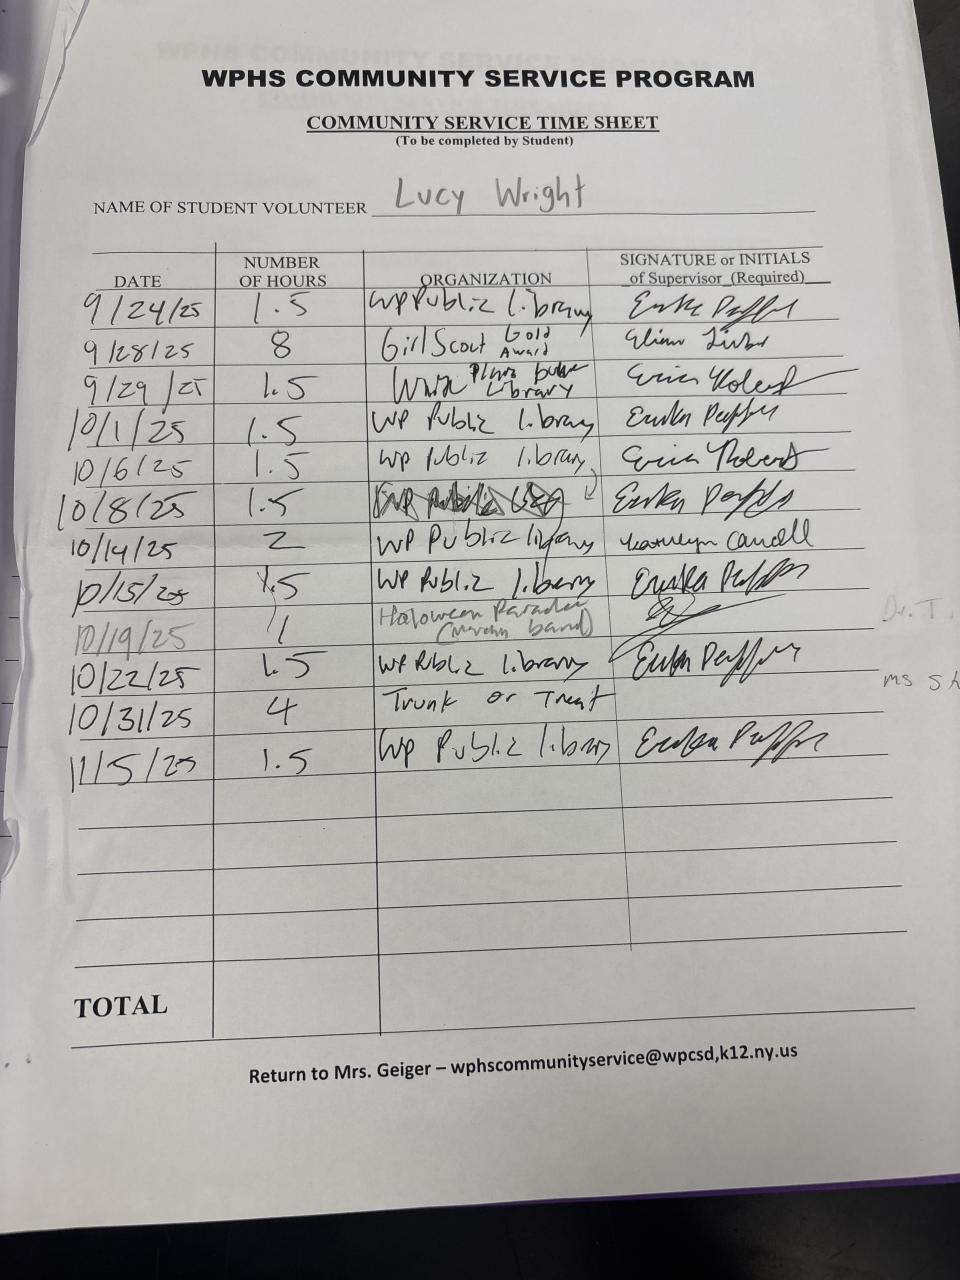 WPHS COMMUNITY SERVICE PROGRAM
COMMUNITY SERVICE TIME SHEET
(To be completed by Student)
NAME OF STUDENT VOLUNTEER Lucy Wright
DATE NUMBER OF HOURS ORGANIZATION SIGNATURE or INITIALS of Supervisor (Required)
9/24/25 1.5 WP Public library
9/28/25 8 Girl Scout Gold Award
9/29/25 1.5 Library Erica Robert
10/1/25 1.5 WP Public library
10/6/25 1.5 WP Public library Erica Robert
10/8/25 1.5
10/14/25 2 WP Public library
10/15/25 1.5 WP Public library
10/19/25 1 Haloween Parade (March band) Dr. T.
10/22/25 1.5 WP Public library
10/31/25 4 Trunk or Treat ms
11/5/25 1.5 WP Public library
TOTAL
Return to Mrs. Geiger – wphscommunityservice@wpcsd,k12.ny.us